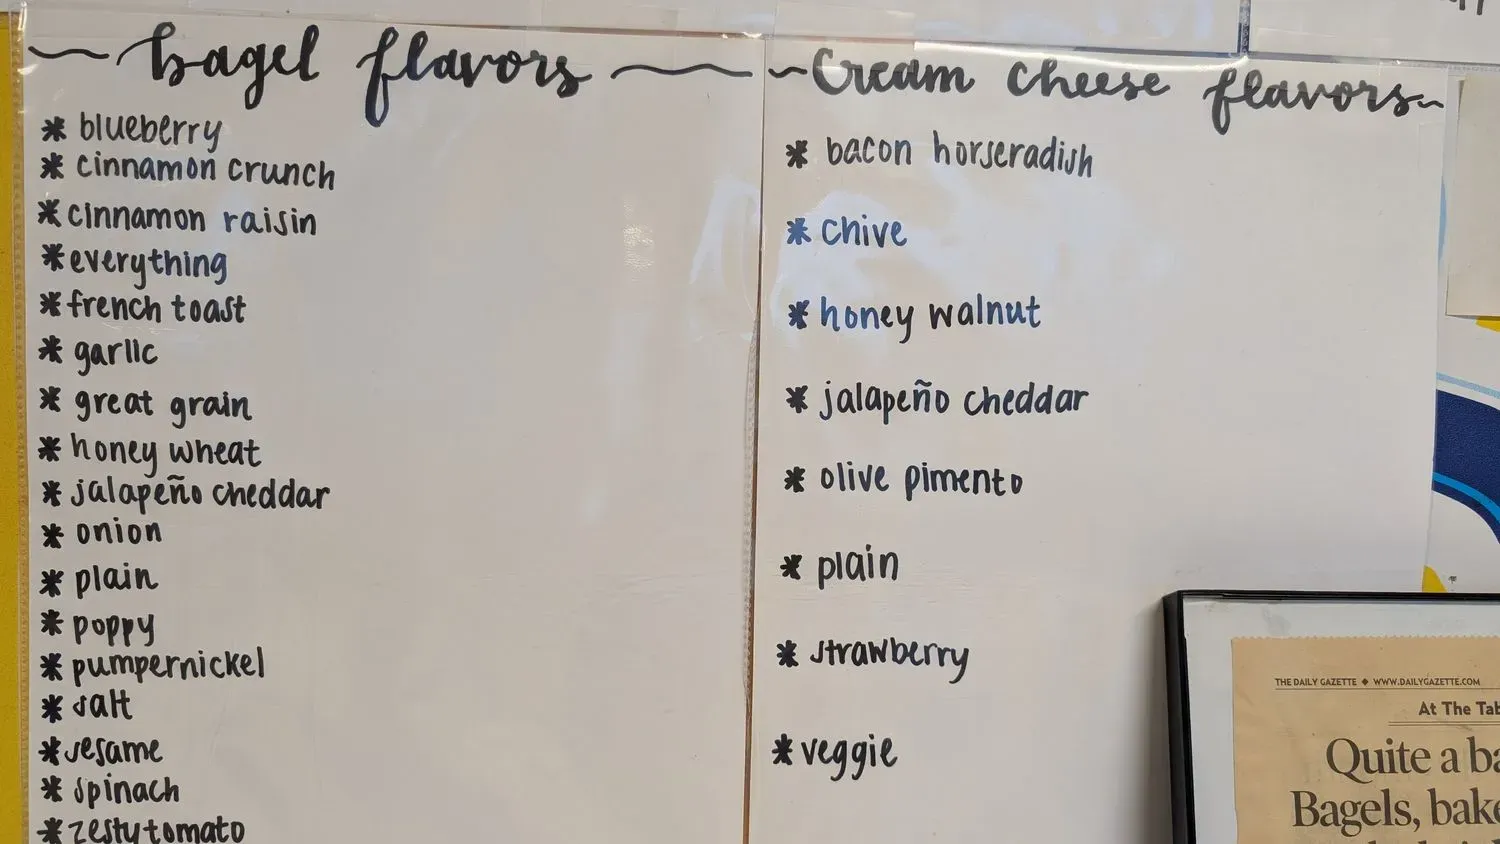 bagel flavors
* blueberry
* cinnamon crunch
* cinnamon raisin
* everything
* french toast
* garlic
* great grain
* honey wheat
* jalapeño cheddar
* onion
* plain
* poppy
* pumpernickel
* salt
* sesame
* spinach
* zesty tomato
Cream cheese flavors
* bacon horseradish
* chive
* honey walnut
* jalapeño cheddar
* olive pimento
* plain
* strawberry
* veggie
THE DAILY GAZETTE ◆ WWW.DAILYGAZETTE.COM
At The
Quite a
Bagels,